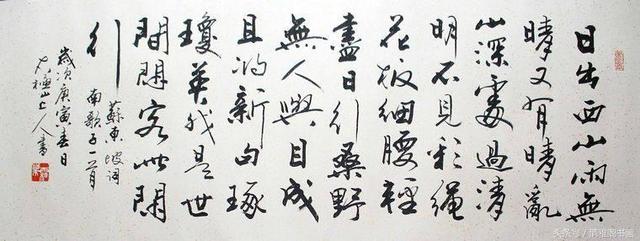 日出西山雨無
晴又有晴亂
山深處過清
明不見彩繩
花板細腰輕
盡日行桑野
無人與目成
且將新句琢
瓊英我是世
間閑客此閑
行
蘇東坡詞
南歌子一首
歲次庚寅春日
山上人書
头条号